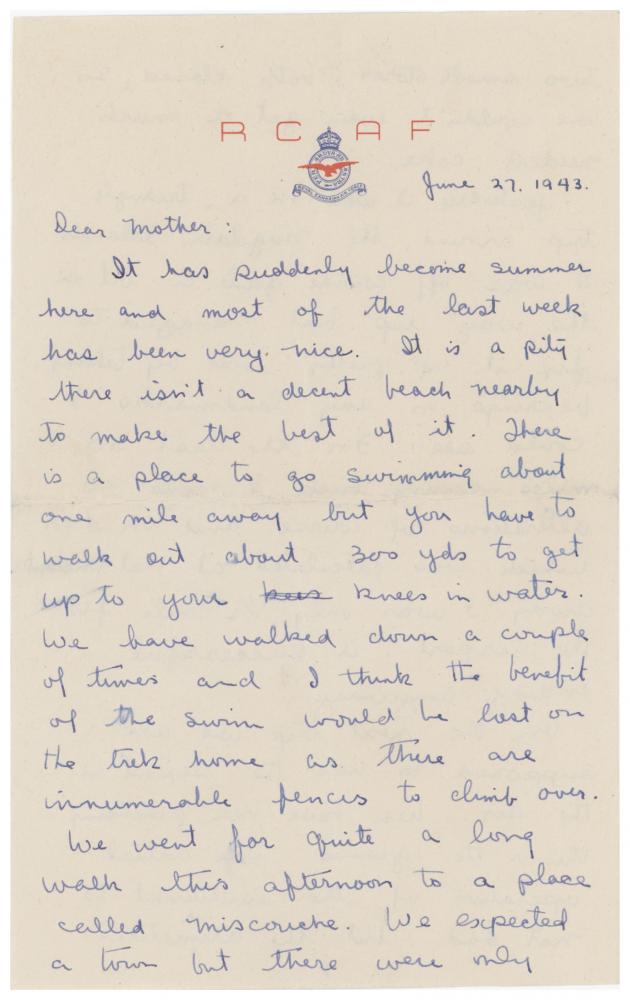 R C A F
June 27. 1943.
Dear Mother:
It has suddenly become summer
here and most of the last week
has been very nice. It is a pity
there isn't a decent beach nearby
to make the best of it. There
is a place to go swimming about
one mile away but you have to
walk out about 300 yds to get
up to your knees in water.
We have walked down a couple
of times and I think the benefit
of the swim would be lost on
the trek home as there are
innumerable fences to climb over.
We went for quite a long
walk this afternoon to a place
called Miscouche. We expected
a town but there were only